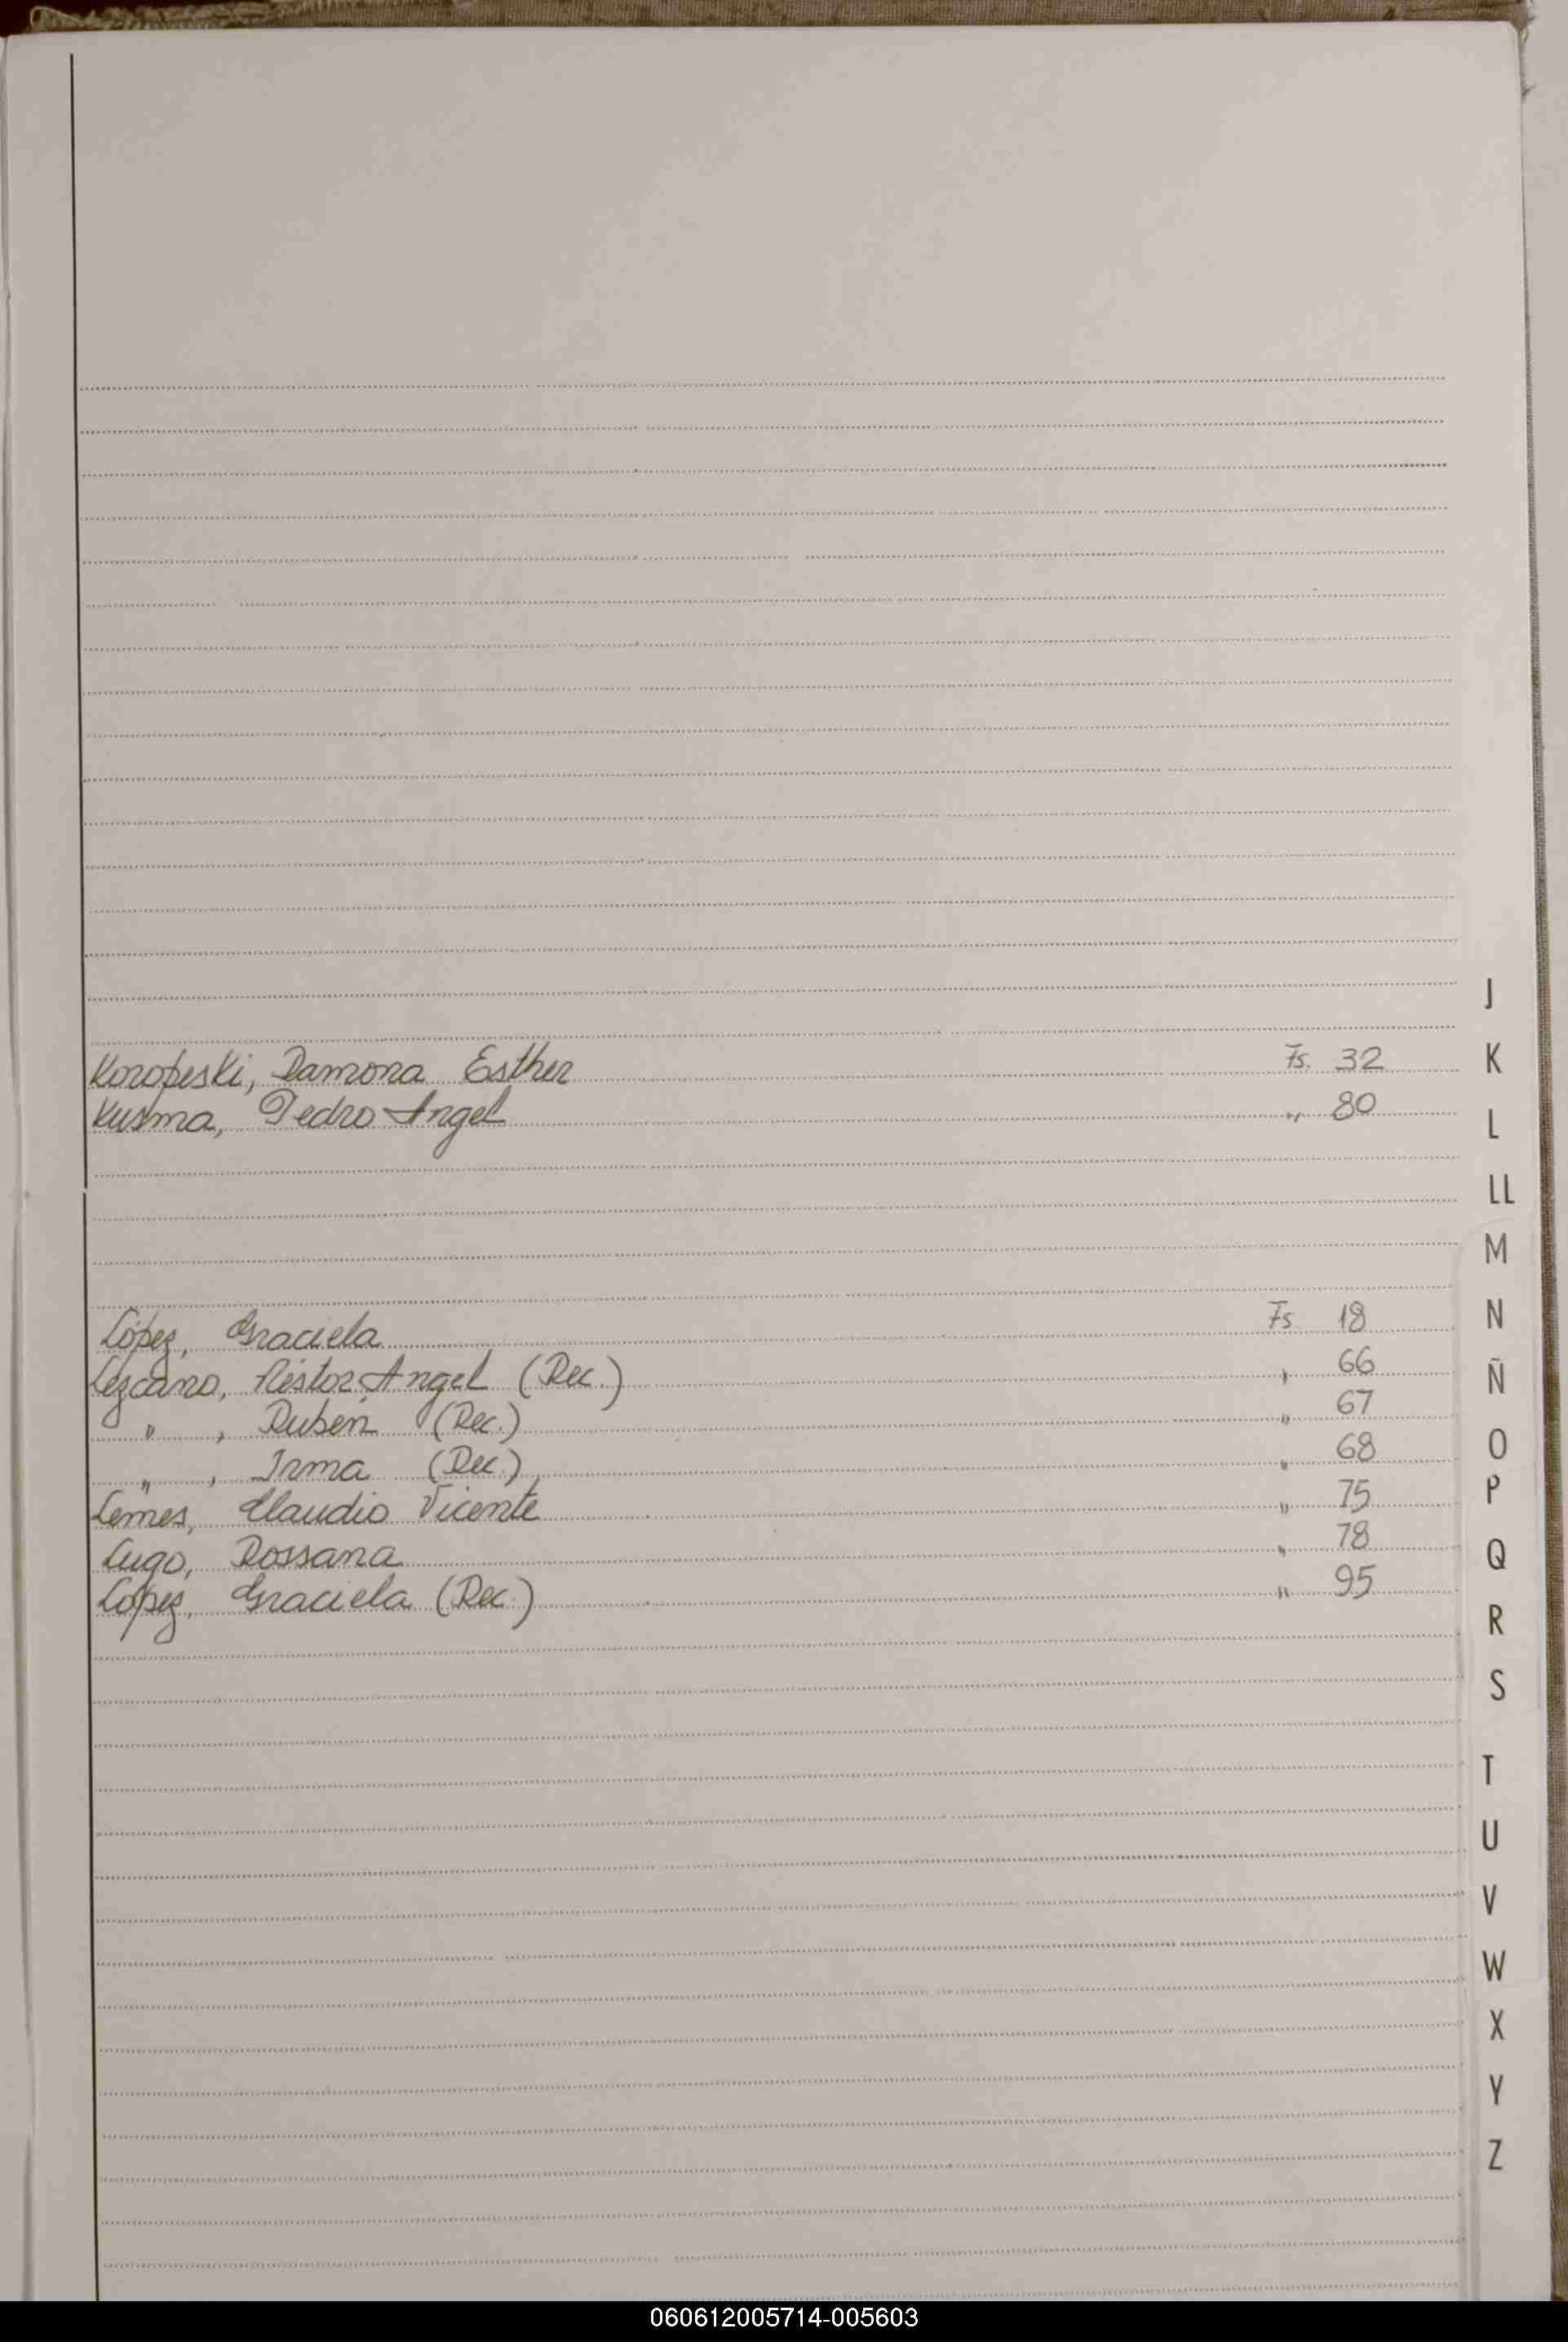 J
Koropeski, Ramona Esther Fs. 32 K
Kusma, Pedro Angel " 80
L
LL
M
López, Graciela Fs 18 N
Lezcano, Néstor Angel (Rec.) " 66 Ñ
" , Rubén (Rec.) " 67
" , Irma (Rec.) " 68 O
Lemes, Claudio Vicente " 75 P
Lugo, Rossana " 78 Q
López, Graciela (Rec.) " 95
R
S
T
U
V
W
X
Y
Z
060612005714-005603